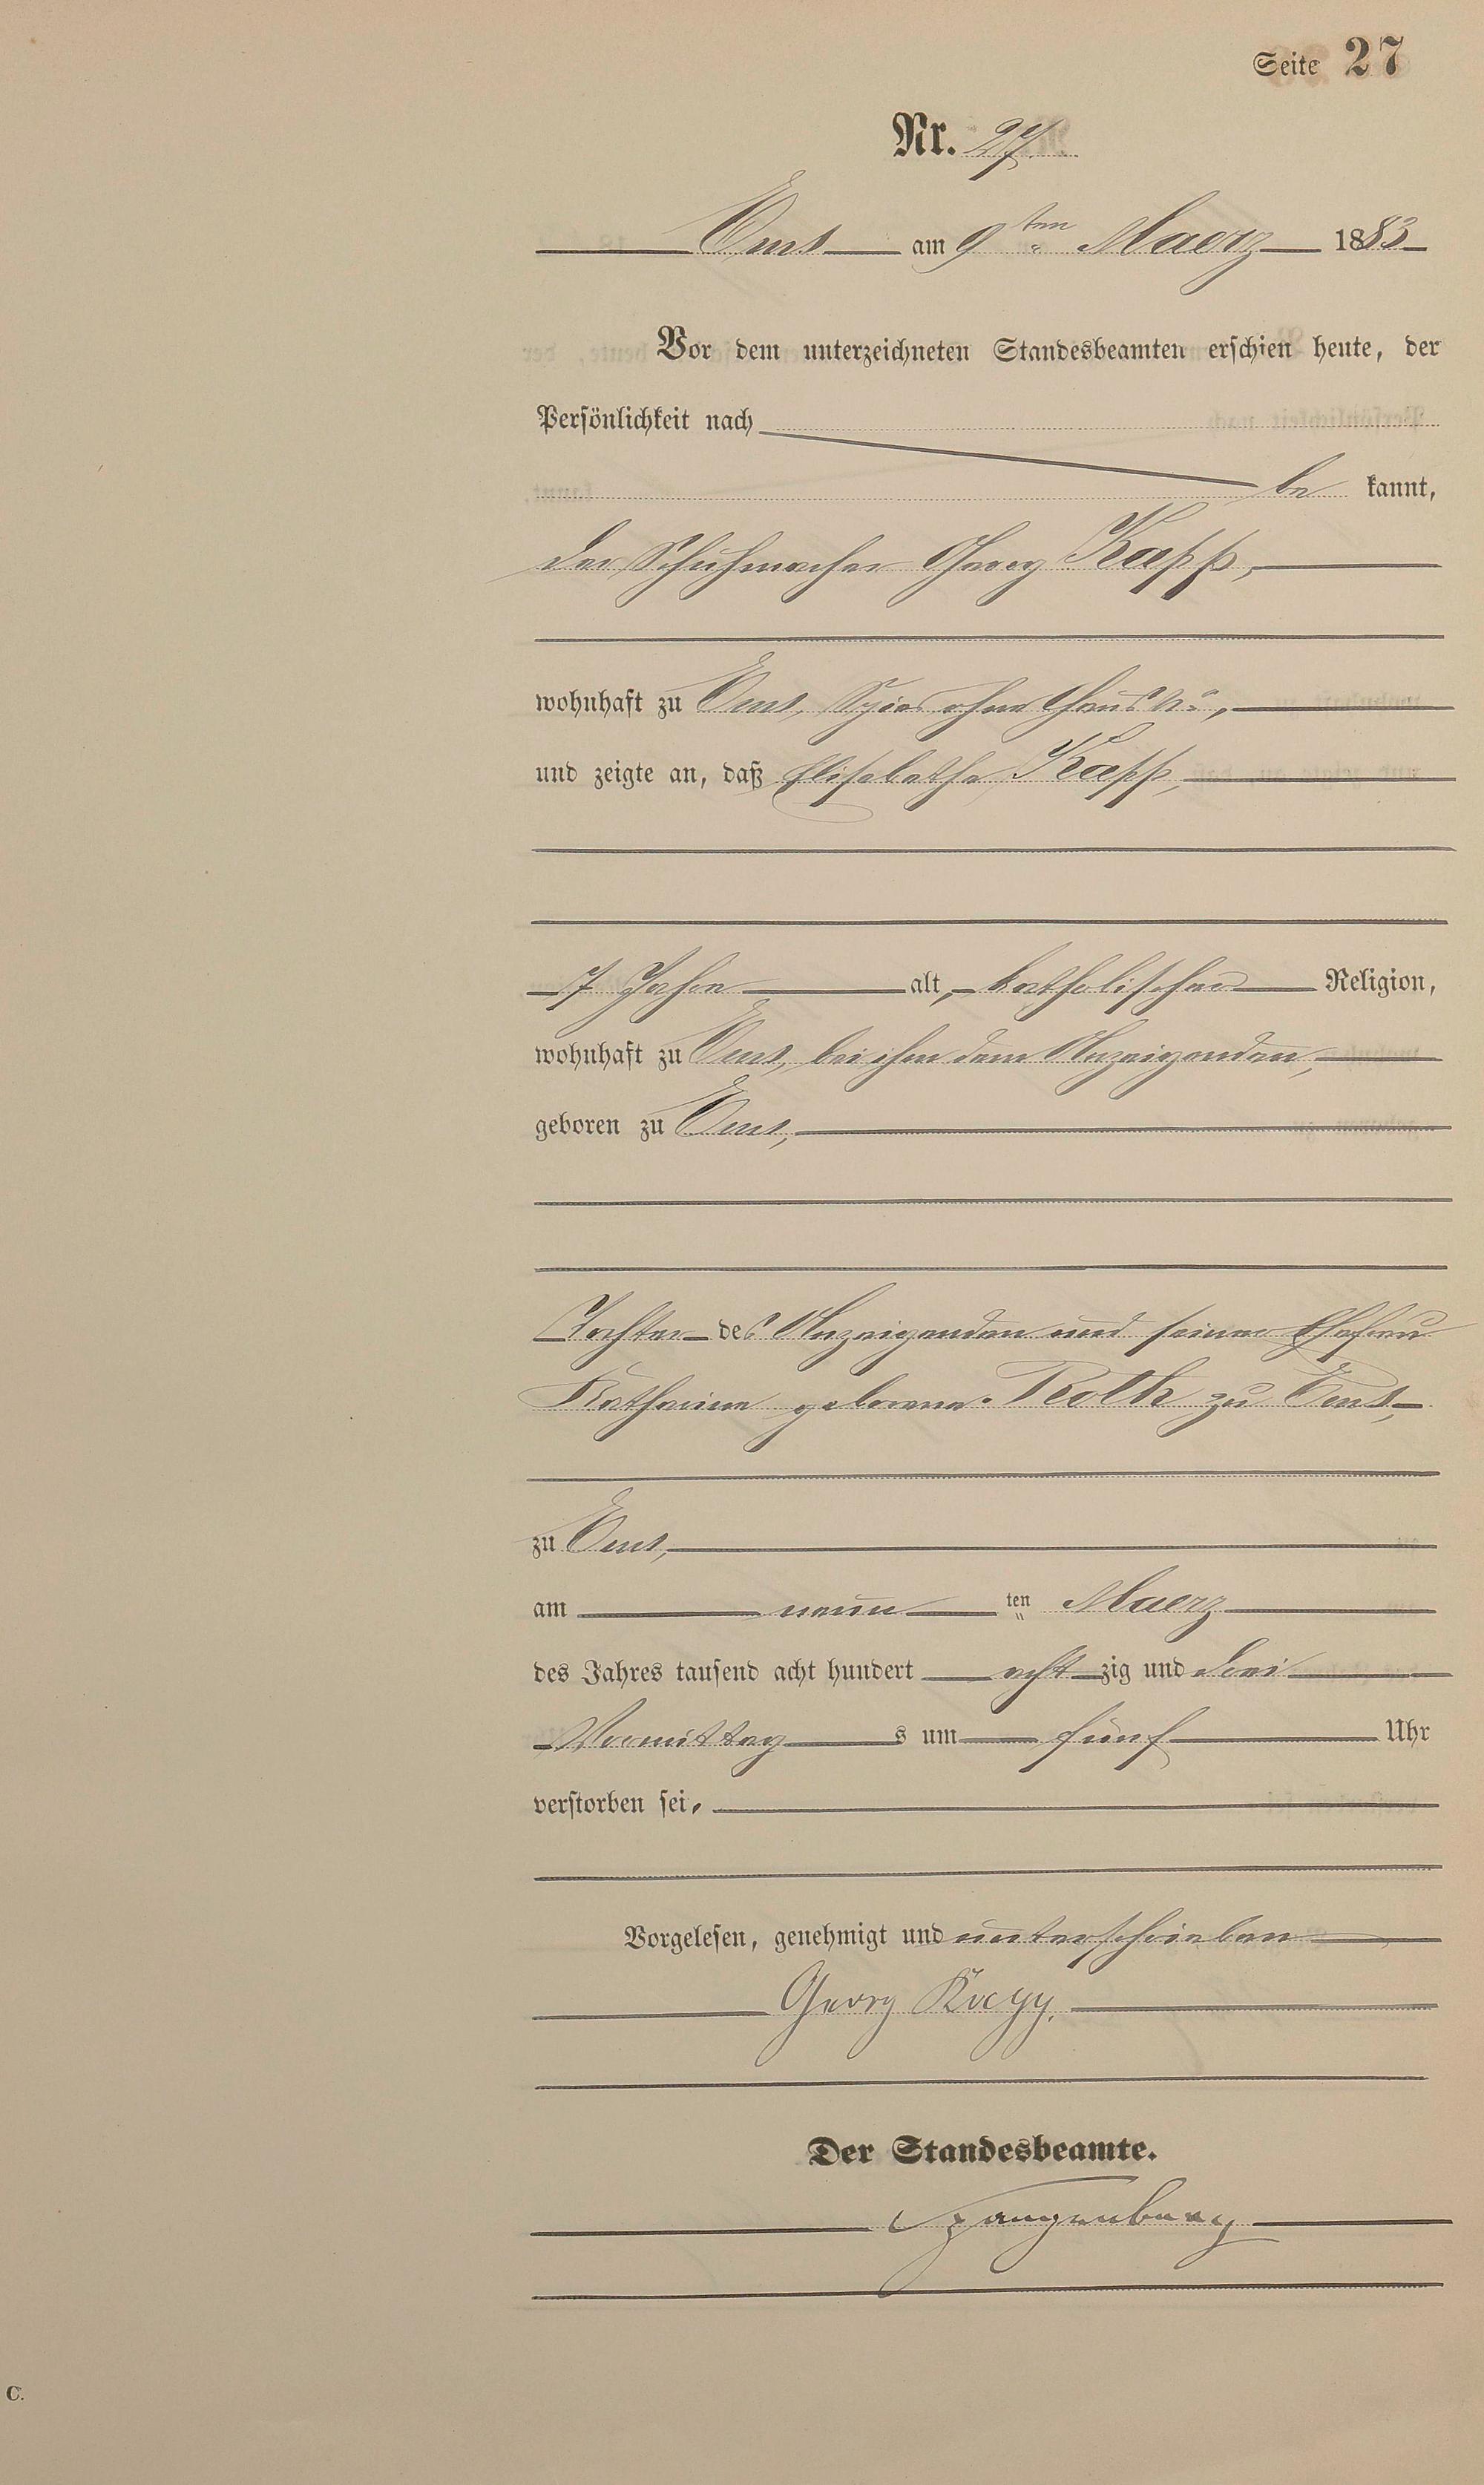 Seite 27
Nr. 27.
Ems am 9ten Maerz 1883
Vor dem unterzeichneten Standesbeamten erschien heute, der
Persönlichkeit nach
be kannt,
der Schuhmacher Georg Kapp,
wohnhaft zu Ems, Spies ohne Haus No,
und zeigte an, daß Elisabetha Kapp,
7 Jahre alt, katholischer Religion,
wohnhaft zu Ems, bei ihm dem Anzeigenden,
geboren zu Ems,
Tochter des Anzeigenden und seiner Ehefrau
Katharine geborene Roth zu Ems,
zu Ems,
am neun ten Maerz
des Jahres tausend acht hundert acht zig und drei
Vormittag s um fünf Uhr
verstorben sei.
Vorgelesen, genehmigt und unterschrieben
Georg Kapp.
Der Standesbeamte.
Spangenberg
C.